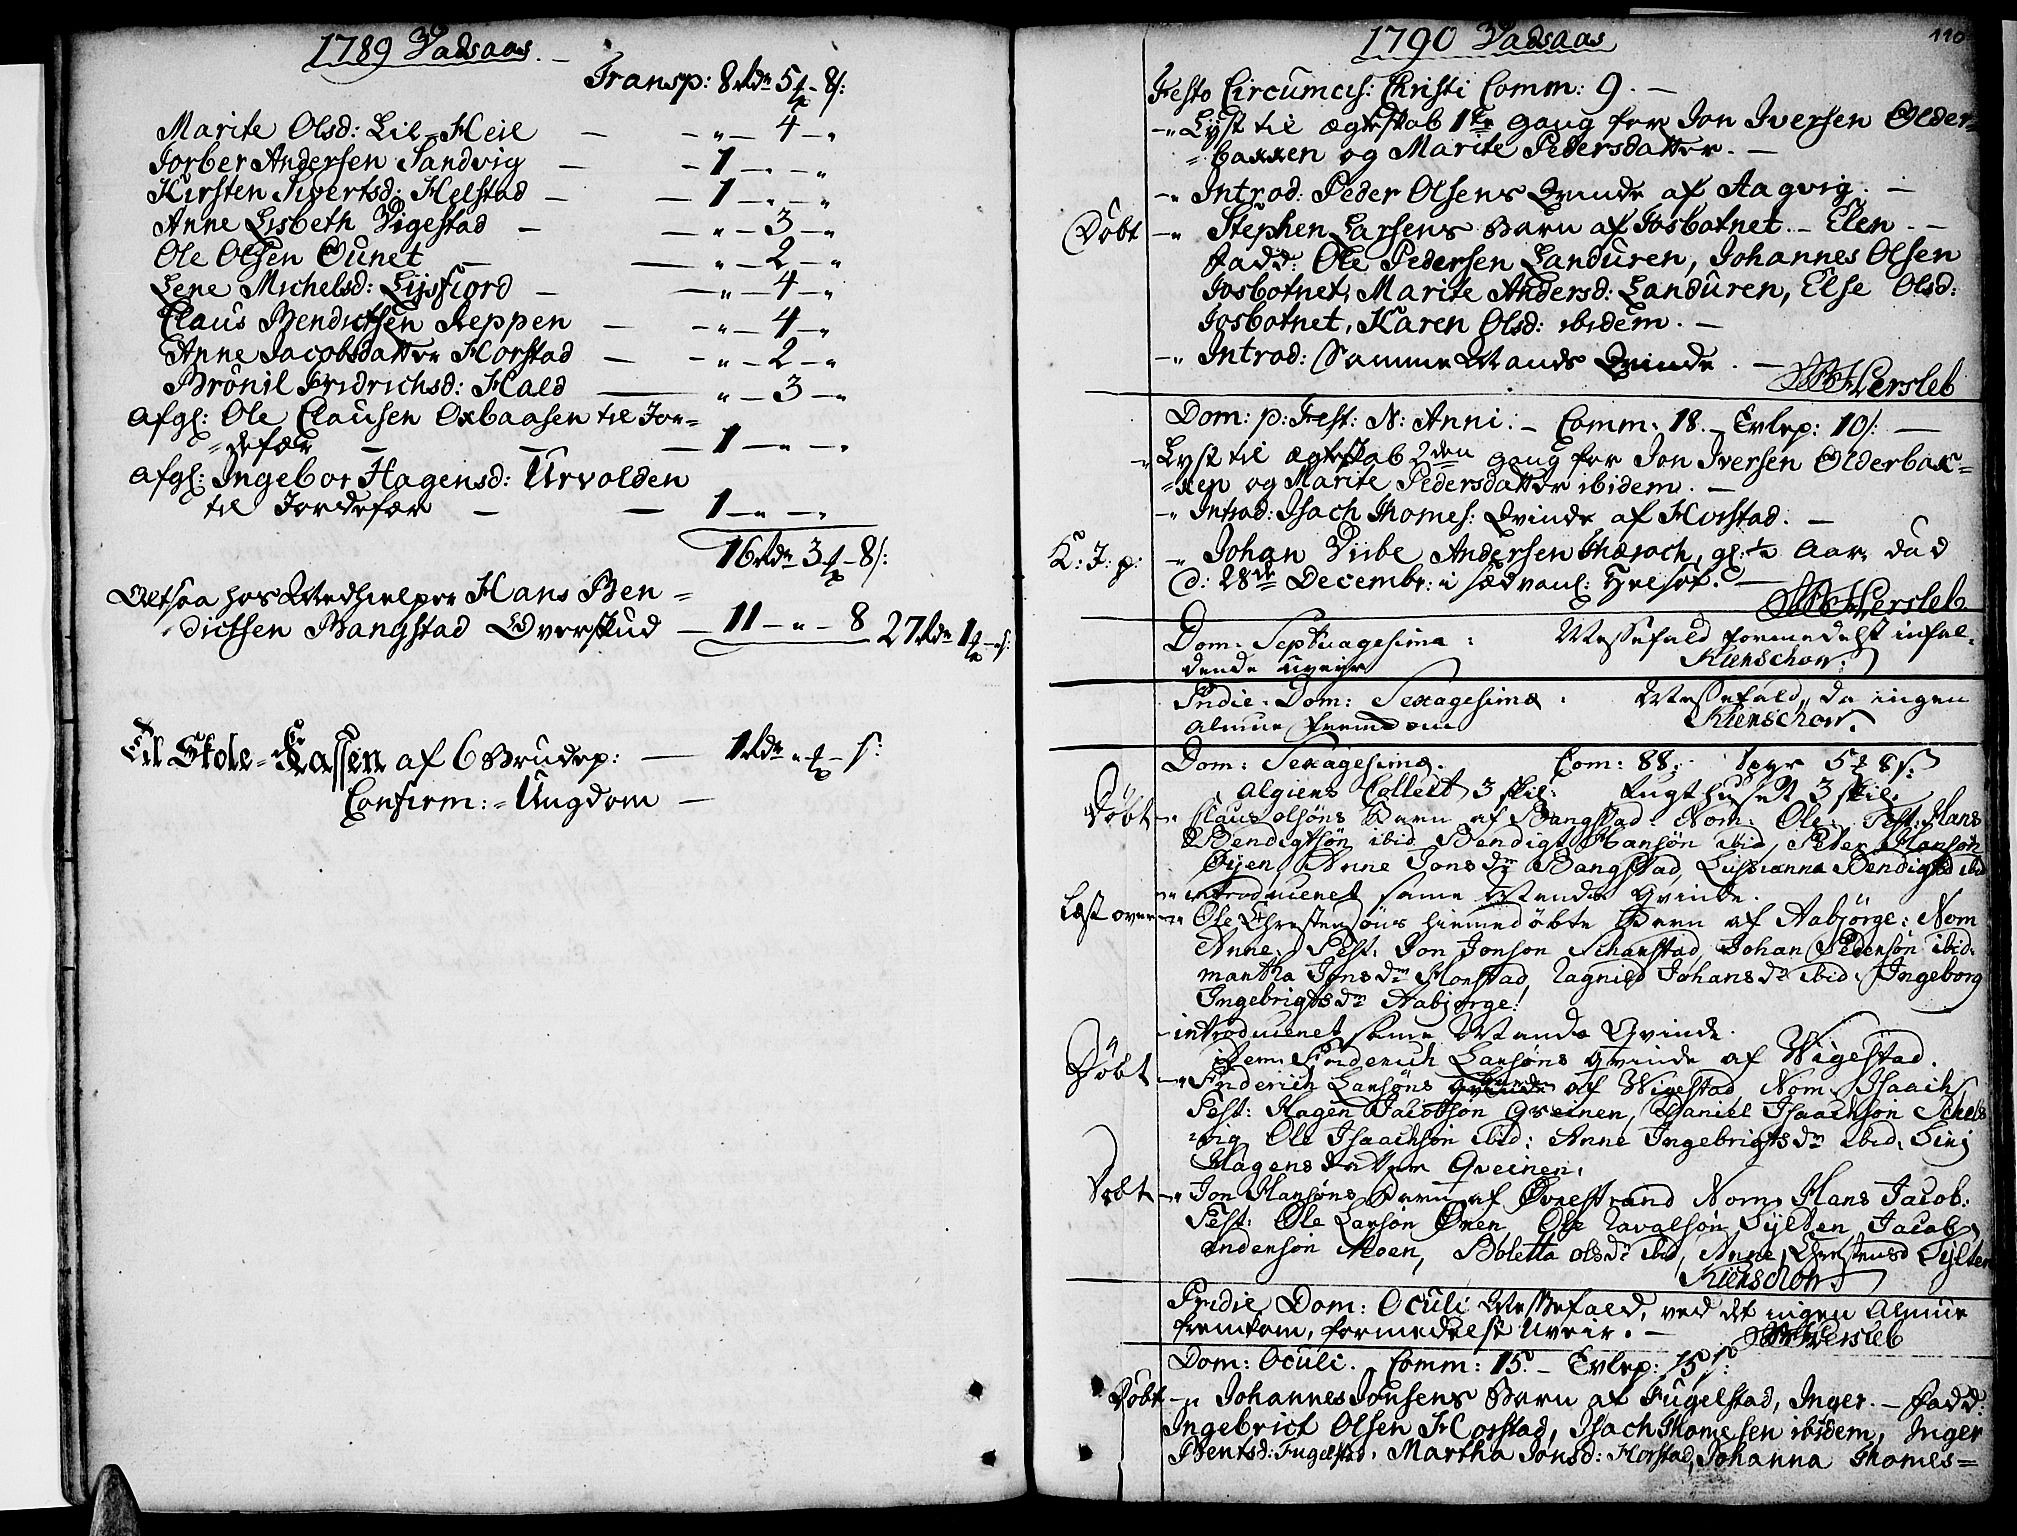 1789 Vadsaas.
Transp: 8 Rdr 5 # - 8 s:
Marite Olsd: Lil-Heil — - „ — 4 - „
Jorber Andersen Sandvig — - 1 - „ - „
Kirsten Sivertsd: Helstad — - 1 - „ - „
Anne Lisbeth Vigestad — - „ — 3 - „
Ole Olsen Ounet — - „ — 2 - „
Lene Michelsd: Lysfiord — - „ — 4 - „
Claus Bendictsen Reppen — - „ — 4 - „
Anne Jacobsdatter Horstad — - „ — 2 - „
Brønil Fridrichsd: Hald — - „ — 3 - „
Afgl: Ole Clausen Oxbaasen til Jor=
=defær — 1 - „ - „
Afgl: Ingebor Hagensd: Urvolden
til Jordefær — 1 - „ - „
16 Rdr 3 # - 8 s:
Altsaa hos Medhielper Hans Ben=
dictsen Bangstad Overskud — 11 - „ - 8 27 Rdr 1 # - „ s:
Til Skole=Kassen af 6 Brudep: — 1 Rdr „ # - s:
Confirm:=Ungdom —
1790 Vadsaas
110
Festo Circumcis: Christi Comm: 9. —
-„ Lyst til Ægteskab 1te Gang for Jon Iversen Older=
=backen og Marite Pedersdatter. —
-„ Introd: Peder Olsens Qvinde af Aagvig. —
Døbt -„ Stephen Larsens Barn af Josbotnet. - Elen. -
Fadd: Ole Pedersen Landuren, Johannes Olsen
Josbotnet, Marite Andersd: Landuren, Else Olsd:
Josbotnet, Karen Olsd: ibidem. —
-„ Introd: Samme Mands Qvinde. — Hersleb
Dom: p: Fest: N: Anni. - Comm: 18. - Tvlep: 10 s: —
-„ Lyst til Ægteskab 2den Gang for Jon Iversen Olderbac=
=ken og Marite Pedersdatter ibidem. —
-„ Introd: Isach Thomes: Qvinde af Horstad. —
K: J: p: -„ Johan Vibe Andersen gl: ½ Aar, død
d: 28de Decembr: i sædvanl: Helsot. —
Hersleb
Dom: Septuagesima: Messefald formedelst infal=
dende uveir Kienschow.
Pridie Dom: Sexagesimæ: Messefald, da ingen
Almue fremkom Kienschow.
Dom: Sexagesimæ. Com: 88. 5 # 8 s:
Algiens Collect 3 skil: Tugthuset 3 skil:
Døbt -„ Claus Olsøns Barn af Bangstad. Nom: Ole. Test: Hans
Bendigtsøn ibid, Bendigt Hansøn ibid, Peder Hansøn
Øyen, Anne Jonsdr Bangstad, Bendigtsd ibid
-„ introduceret same Mands Qvinde.
Læst over -„ Ole Christensøns hiemmedøbte Barn af Aabjørge: Nom
Anne. Test: Jon Jonson Schanstad, Johan Pedersøn ibid.
Martha Jonsdr Horstad, Ragnild Johansdr ibid. Ingeborg
Ingebrigtsdr Aabjørge.
- introduceret same Mands Qvinde.
idem: Friderich Larsøns Qvinde af Wigestad.
Døbt -„ Friderich Larsøns af Wigestad Nom. Isaach
Test: Hagen Jacobsøn Greinen, Daniel Isaachsøn Schels
=vig, Ole Isaachsøn ibid: Anne Ingebrigtsdr ibid.
Hagensdatter Qveinen.
Døbt -„ Jon Hansøns Barn af Øvrestrand Nom: Hans Jacob.
Test: Ole Larsøn Øren, Ole Sylten, Jacob
Andersøn Moen, Boletta Olsdr ibid, Anne Christensd Sylten
Kienschow
Pridie Dom: Oculi Messefald, ved det ingen Almue
fremkom, formedelst Uveir. — Hersleb
Dom: Oculi. Comm: 15. - Tvlep: 15 s:
Døbt -„ Johannes Jonsens Barn af Fugelstad, Inger. - Fadd:
Ingebrict Olsen Horstad, Isach Thomesen ibidem, Inger
Bentsd: Fugelstad, Martha Jonsd: Horstad, Johanna Thomes=